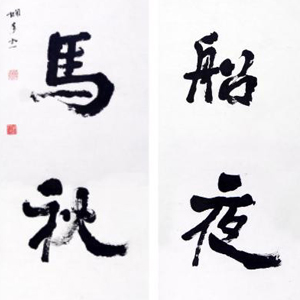 船夜
馬秋